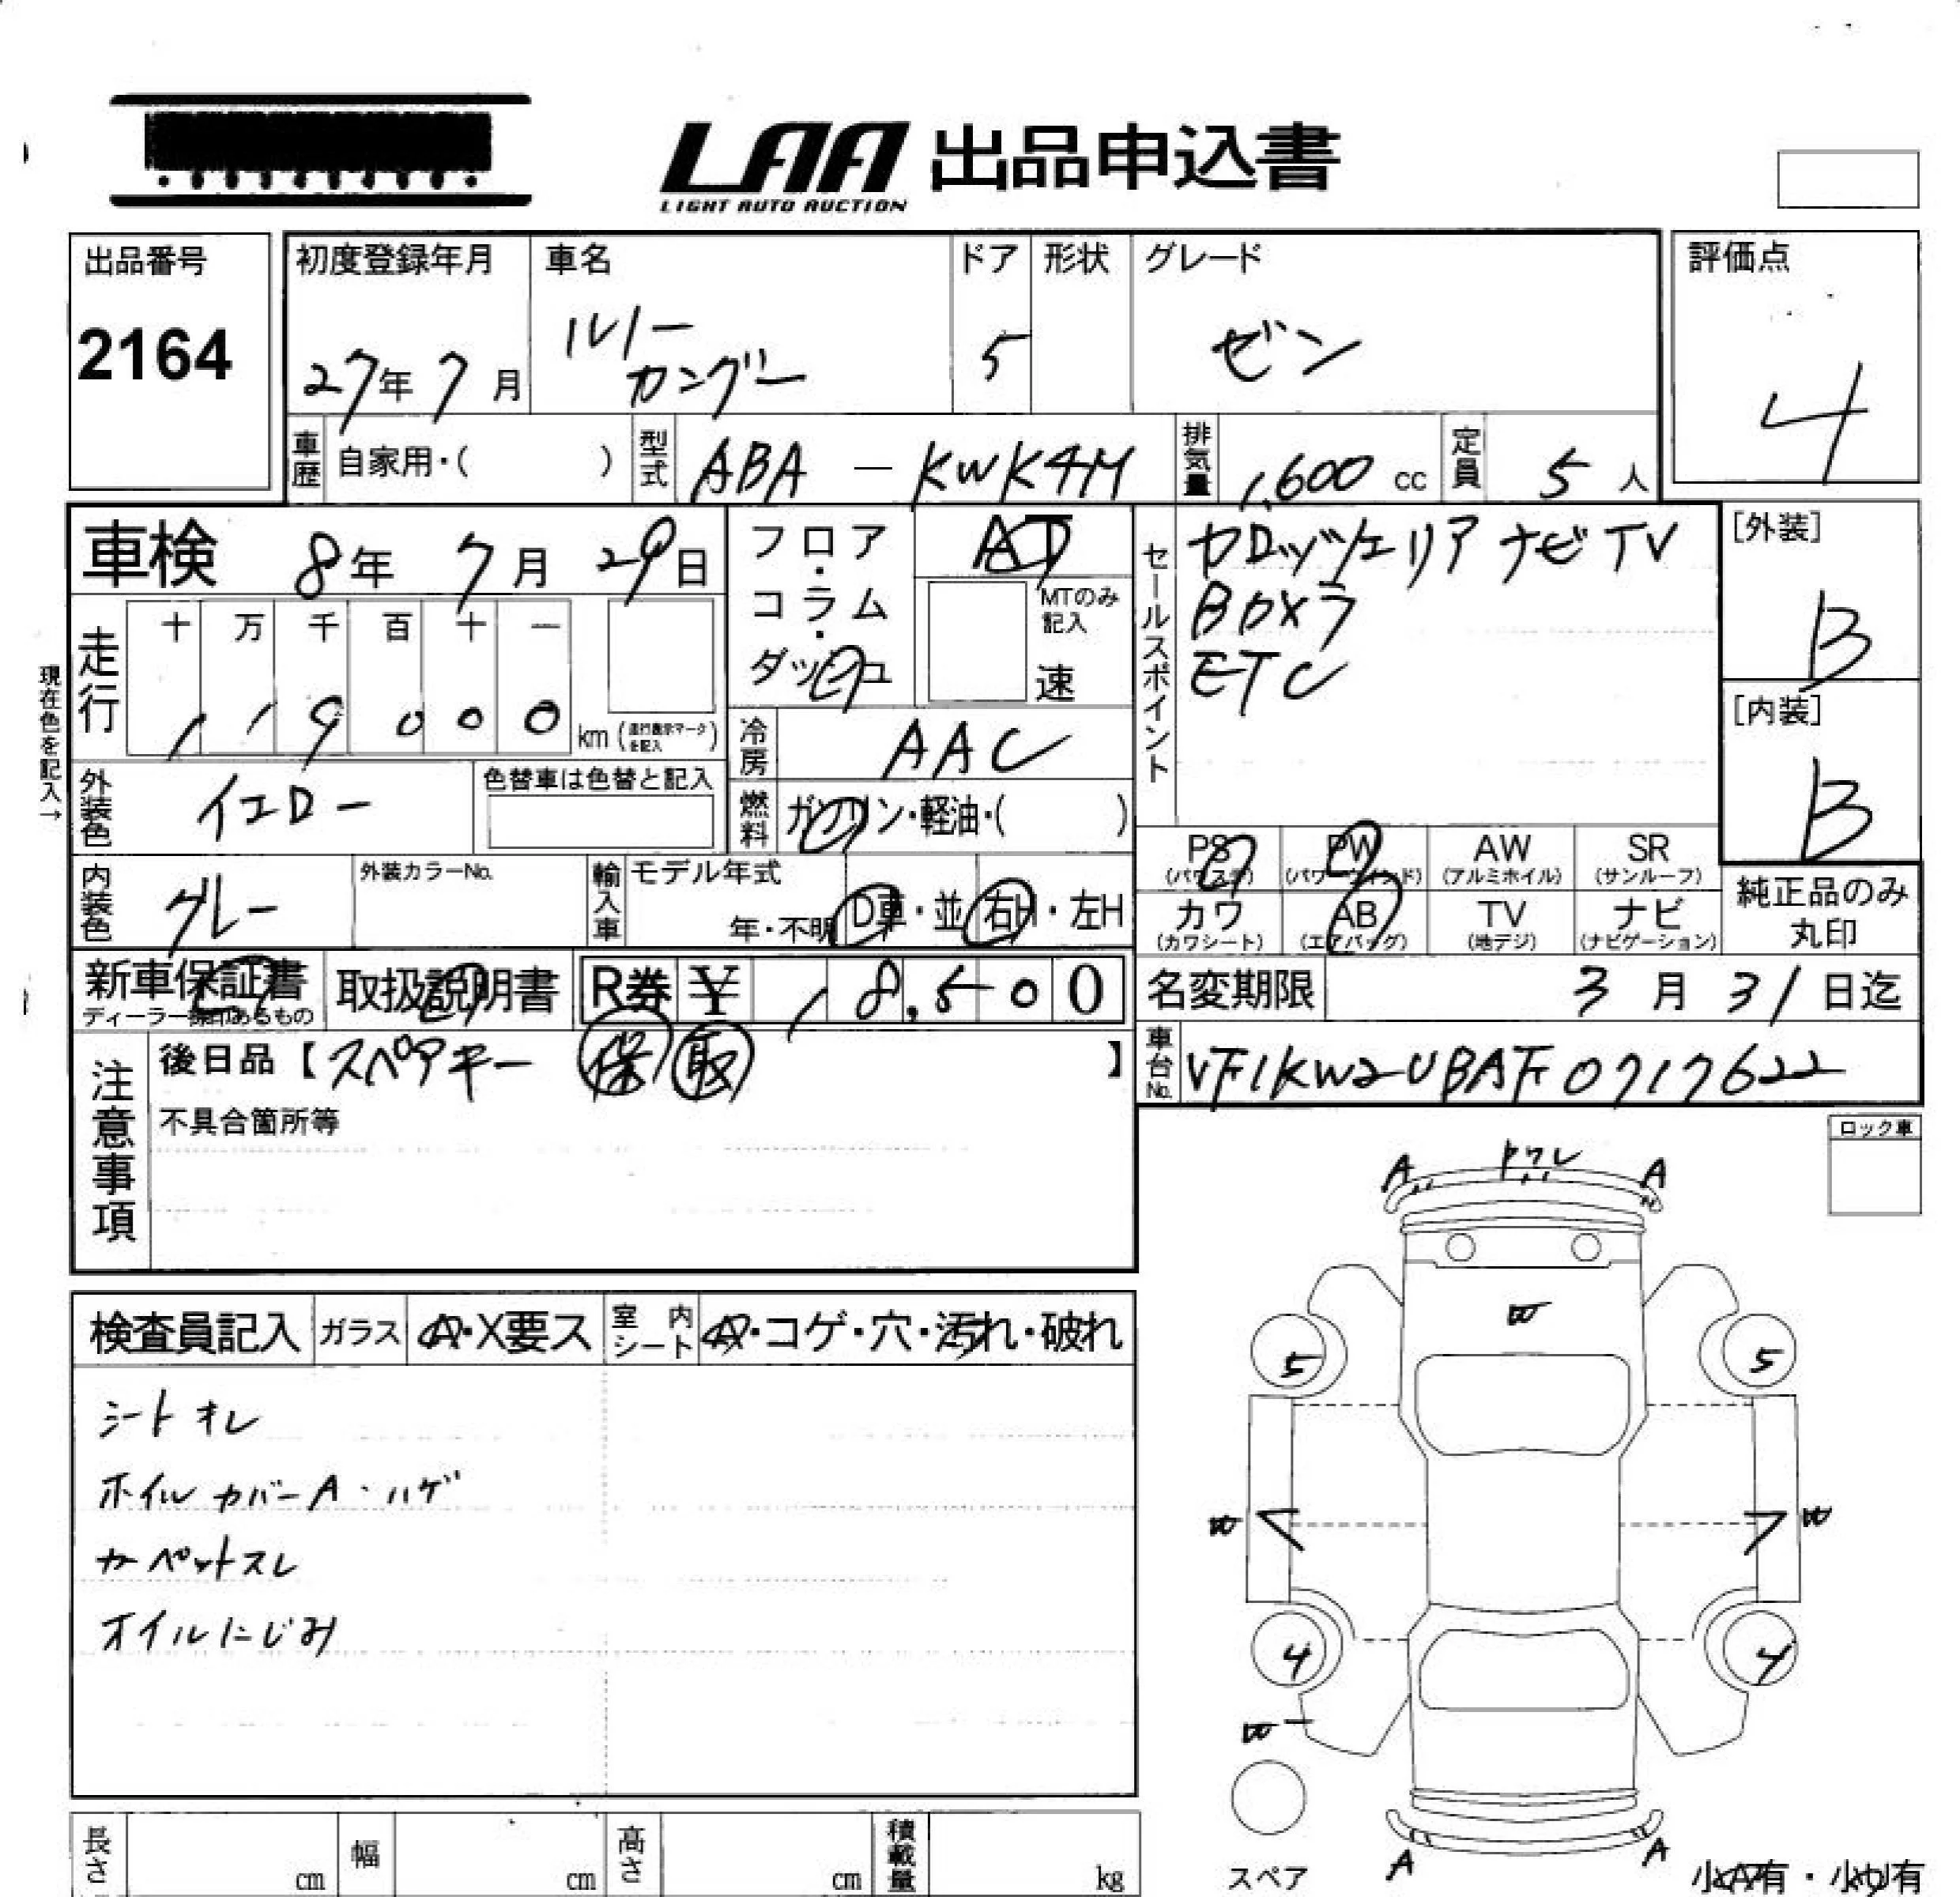 LAA 出品申込書
LIGHT AUTO AUCTION
出品番号
2164
初度登録年月
27年 7月
車名
ルノー
カングー
ドア
5
形状
グレード
ゼン
評価点
4
車歴 自家用・( )
型式 ABA - KWK4M
排気量 1,600 cc
定員 5 人
車検 8年 7月 29日
フロア・コラム・ダッシュ
AT
MTのみ記入
速
セールスポイント
カロッツェリア ナビ TV
Bカメラ
ETC
[外装]
B
[内装]
B
現在色を記入→
走行
十 万 千 百 十 一
1 1 9 0 0 0 km (走行表示マークを記入)
冷房 AAC
外装色 イエロー
色替車は色替と記入
燃料 ガソリン・軽油・( )
内装色 グレー
外装カラーNo.
輸入車 モデル年式
年・不明 D車・並 右H・左H
PS (パワステ)
PW (パワーウインド)
AW (アルミホイル)
SR (サンルーフ)
カワ (カワシート)
AB (エアバッグ)
TV (地デジ)
ナビ (ナビゲーション)
純正品のみ丸印
新車保証書
ディーラー捺印あるもの
取扱説明書
R券 ¥ 18,500
名変期限 3月 31日迄
車台No. VF1KW2UBAF0717622
注意事項
後日品【スペアキー 保 取 】
不具合箇所等
ロック車
検査員記入
ガラス A・X要ス
室内シート A・コゲ・穴・汚れ・破れ
シートオレ
ホイルカバーA・ハゲ
カーペットスレ
オイルにじみ
A ワレ A
W
5 5
W W
4 4
W
A A
スペア
小A有・小U有
長さ cm
幅 cm
高さ cm
積載量 kg